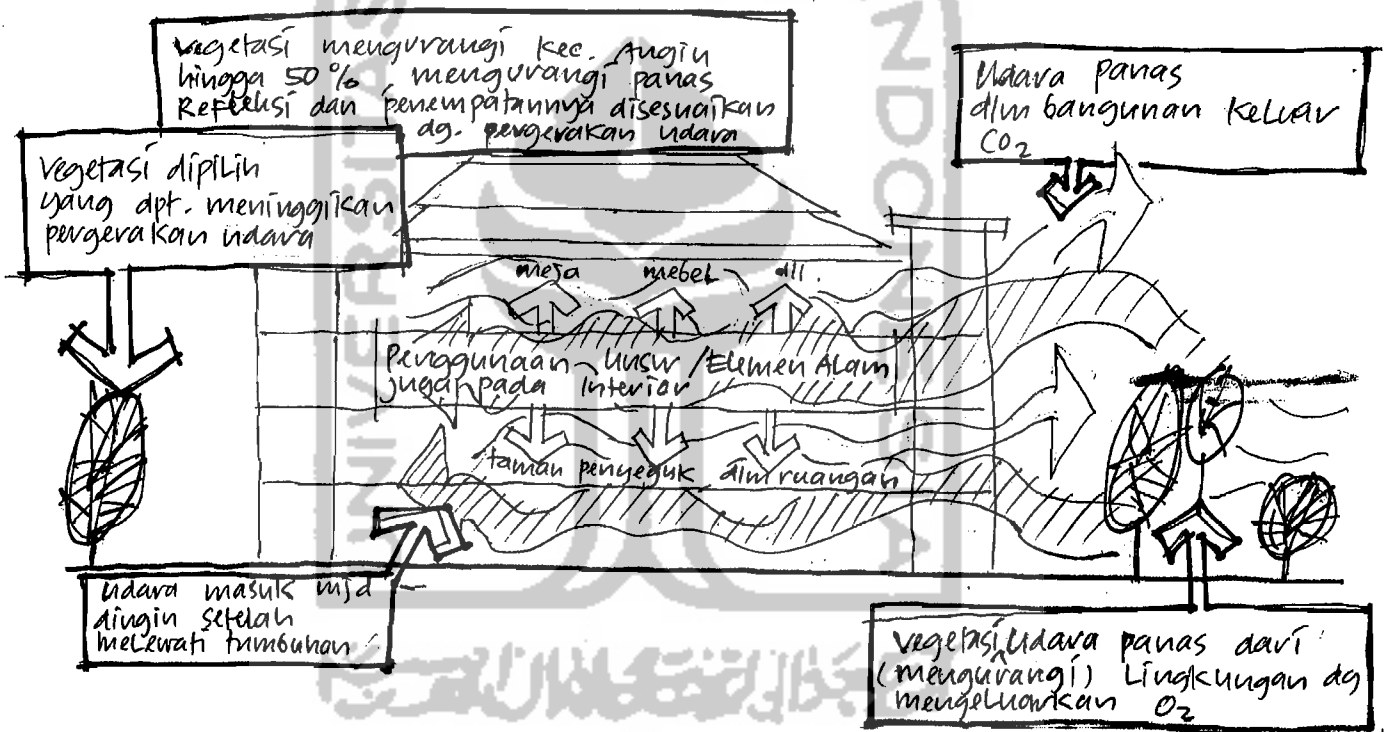 vegetasi mengurangi kec. Angin
hingga 50% mengurangi panas
Refleksi dan penempatannya disesuaikan
dg. pergerakan udara
Udara panas
dlm bangunan keluar
CO2
vegetasi dipilih
yang dpt. meninggikan
pergerakan udara
meja mebel dll.
Penggunaan Unsur / Elemen Alam
juga pada Interior
taman penyejuk dlm ruangan
udara masuk mjd
dingin setelah
melewati tumbuhan
vegetasi udara panas dari
(mengurangi) Lingkungan dg
mengeluarkan O2
UNIVERSITAS
INDONESIA